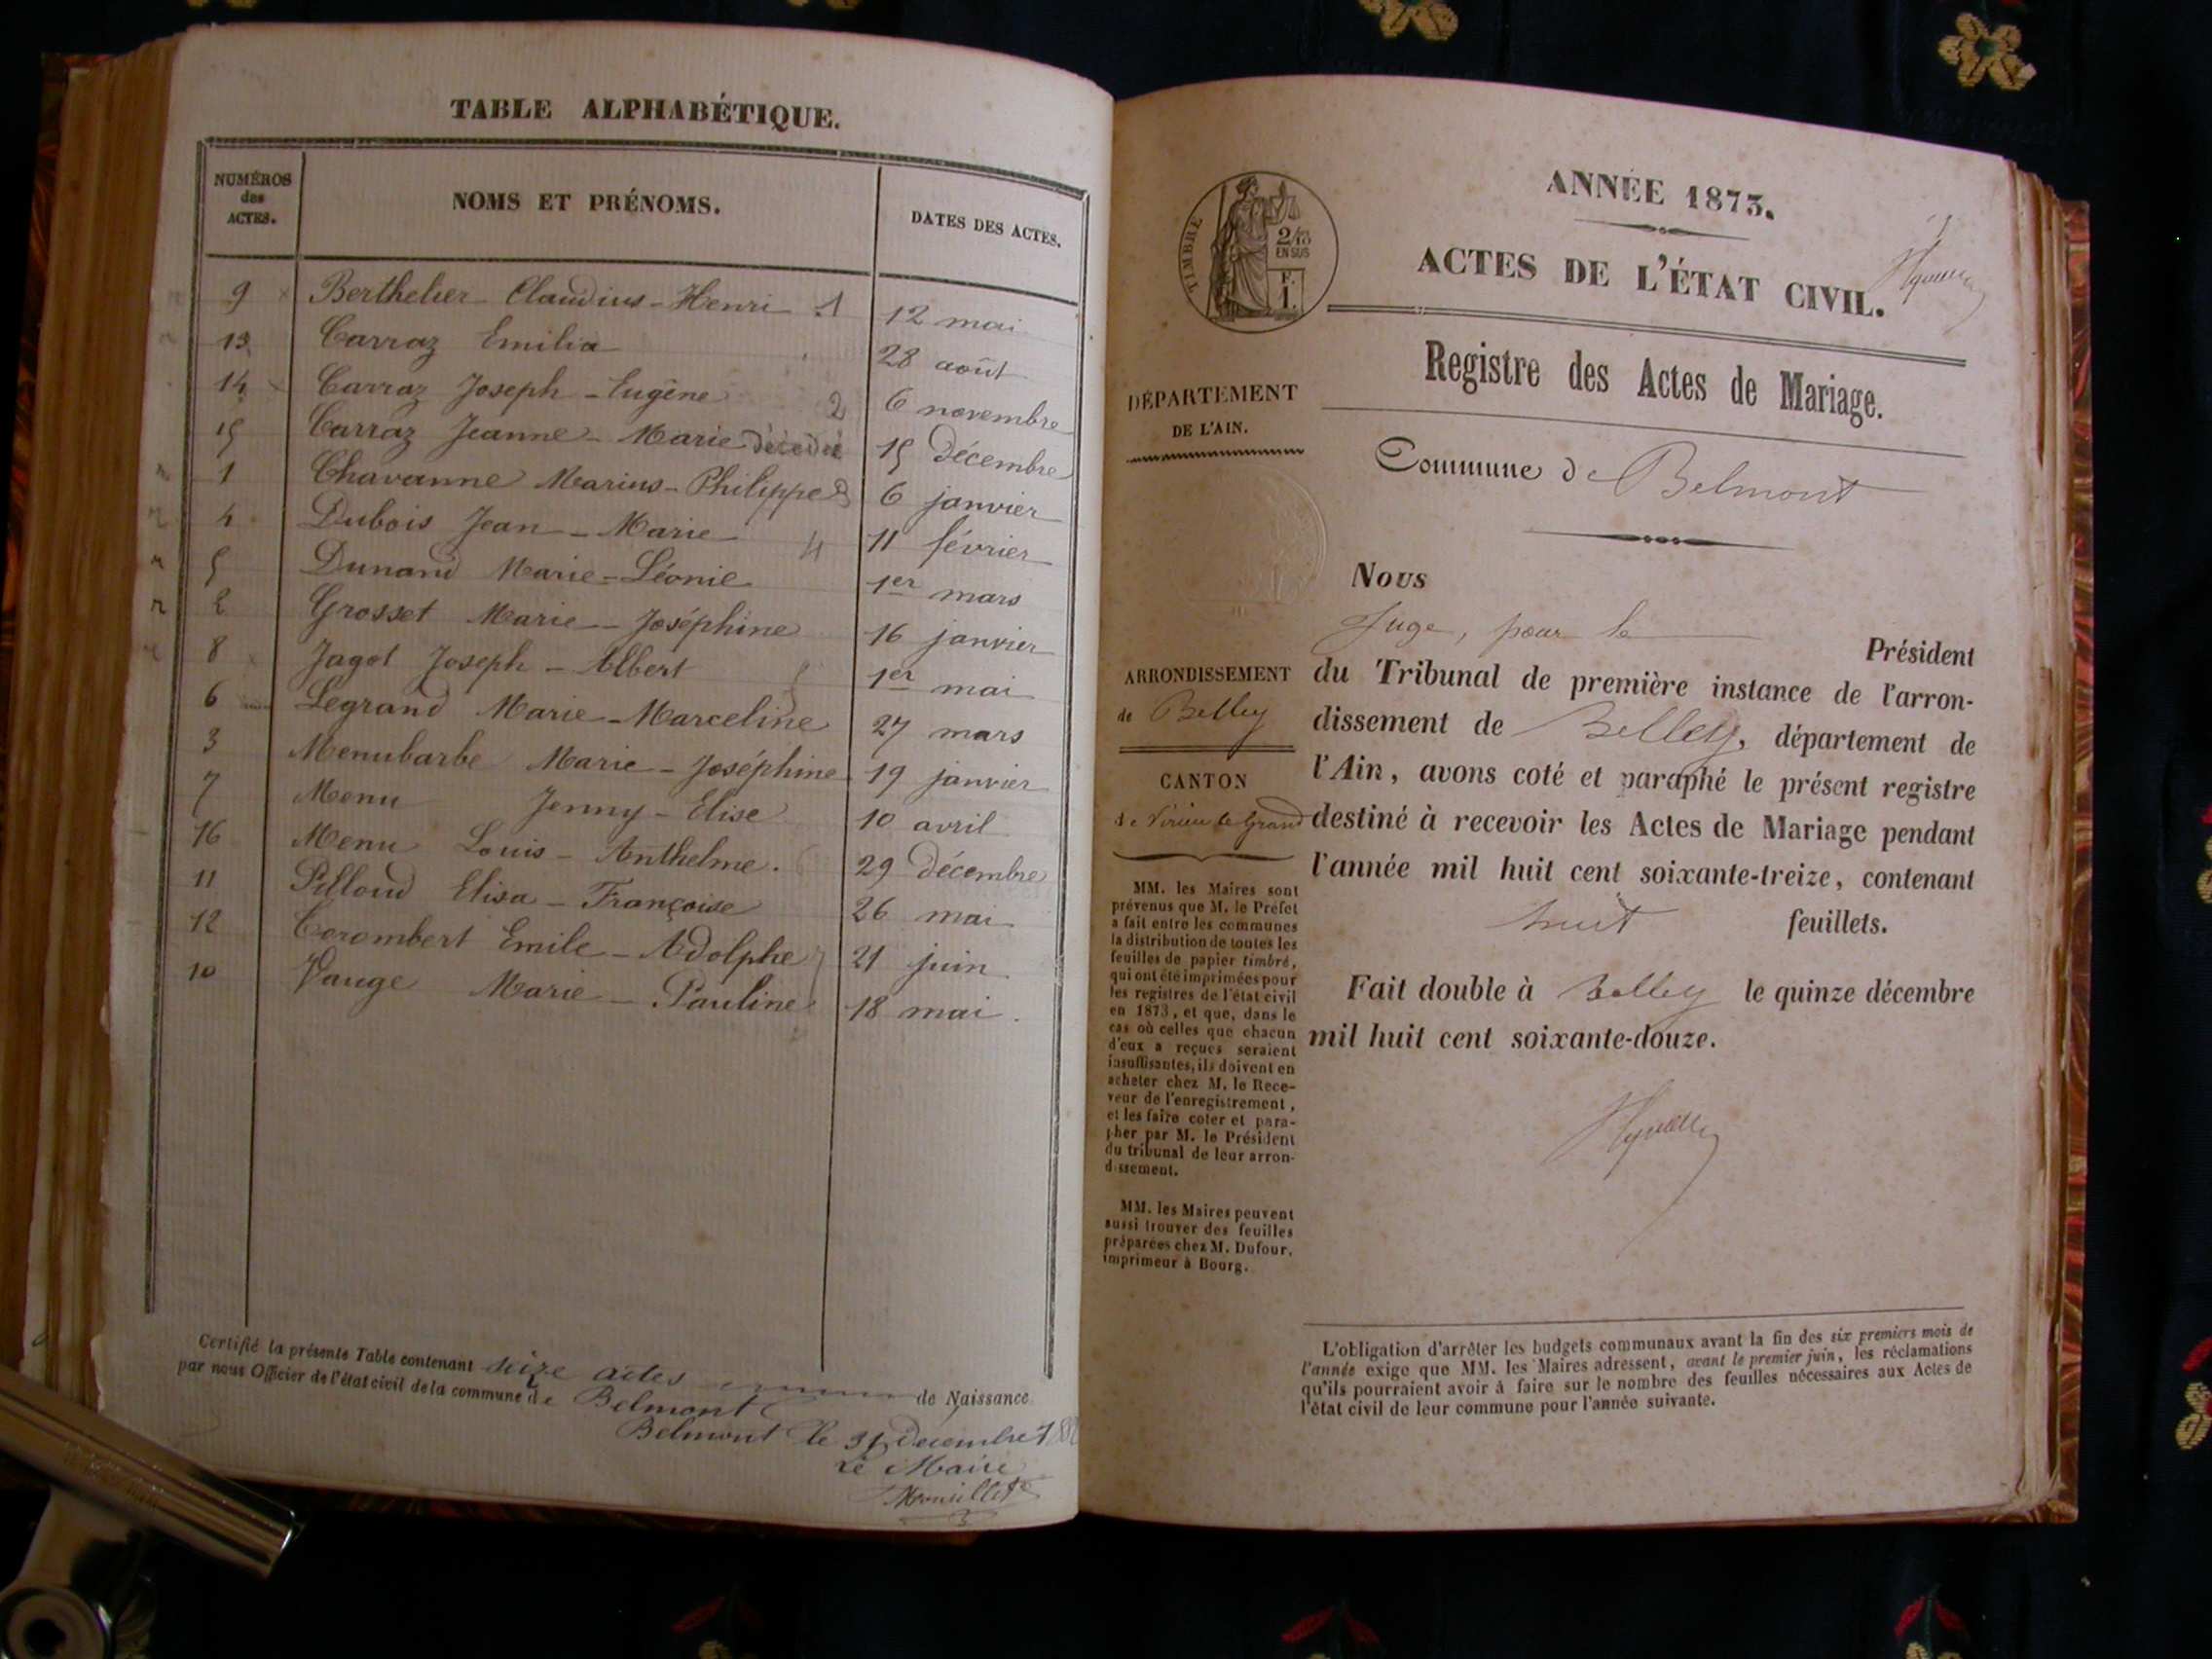 TABLE ALPHABÉTIQUE.
NUMÉROS des ACTES. NOMS ET PRÉNOMS. DATES DES ACTES.
9 Berthelier Claudius-Henri 1 12 mai
13 Carraz Emilia 28 août
14 Carraz Joseph-Eugène 2 6 novembre
15 Carraz Jeanne-Marie décédée 15 décembre
1 Chavanne Marius-Philippe 3 6 janvier
4 Dubois Jean-Marie 4 11 février
5 Dunand Marie-Léonie 1er mars
2 Grosset Marie-Joséphine 16 janvier
8 Jagot Joseph-Albert 5 1er mai
6 Legrand Marie-Marceline 27 mars
3 Menubarbe Marie-Joséphine 19 janvier
7 Menu Jenny-Elise 10 avril
16 Menu Louis-Anthelme. 6 29 décembre
11 Pilloud Elisa-Françoise 26 mai
12 Corombert Emile-Adolphe 7 21 juin
10 Vauge Marie-Pauline 18 mai.
Certifié la présente Table contenant seize actes de Naissance
par nous Officier de l'état civil de la commune de Belmont
Belmont le 31 décembre
Le Maire
ANNÉE 1873.
ACTES DE L'ÉTAT CIVIL.
TIMBRE
2/10
EN SUS
F.
1.
Registre des Actes de Mariage.
DÉPARTEMENT
DE L'AIN.
Commune de Belmont
Nous
Juge, pour le Président
du Tribunal de première instance de l'arron-
dissement de Belley, département de
l'Ain, avons coté et paraphé le présent registre
destiné à recevoir les Actes de Mariage pendant
l'année mil huit cent soixante-treize, contenant
huit feuillets.
Fait double à Belley le quinze décembre
mil huit cent soixante-douze.
ARRONDISSEMENT
de Belley
CANTON
de Virieu le Grand
MM. les Maires sont
prévenus que M. le Préfet
a fait entre les communes
la distribution de toutes les
feuilles de papier timbré,
qui ont été imprimées pour
les registres de l'état civil
en 1873, et que, dans le
cas où celles que chacun
d'eux a reçues seraient
insuffisantes, ils doivent en
acheter chez M. le Rece-
veur de l'enregistrement,
et les faire coter et para-
pher par M. le Président
du tribunal de leur arron-
dissement.
MM. les Maires peuvent
aussi trouver des feuilles
préparées chez M. Dufour,
imprimeur à Bourg.
L'obligation d'arrêter les budgets communaux avant la fin des six premiers mois de
l'année exige que MM. les Maires adressent, avant le premier juin, les réclamations
qu'ils pourraient avoir à faire sur le nombre des feuilles nécessaires aux Actes de
l'état civil de leur commune pour l'année suivante.